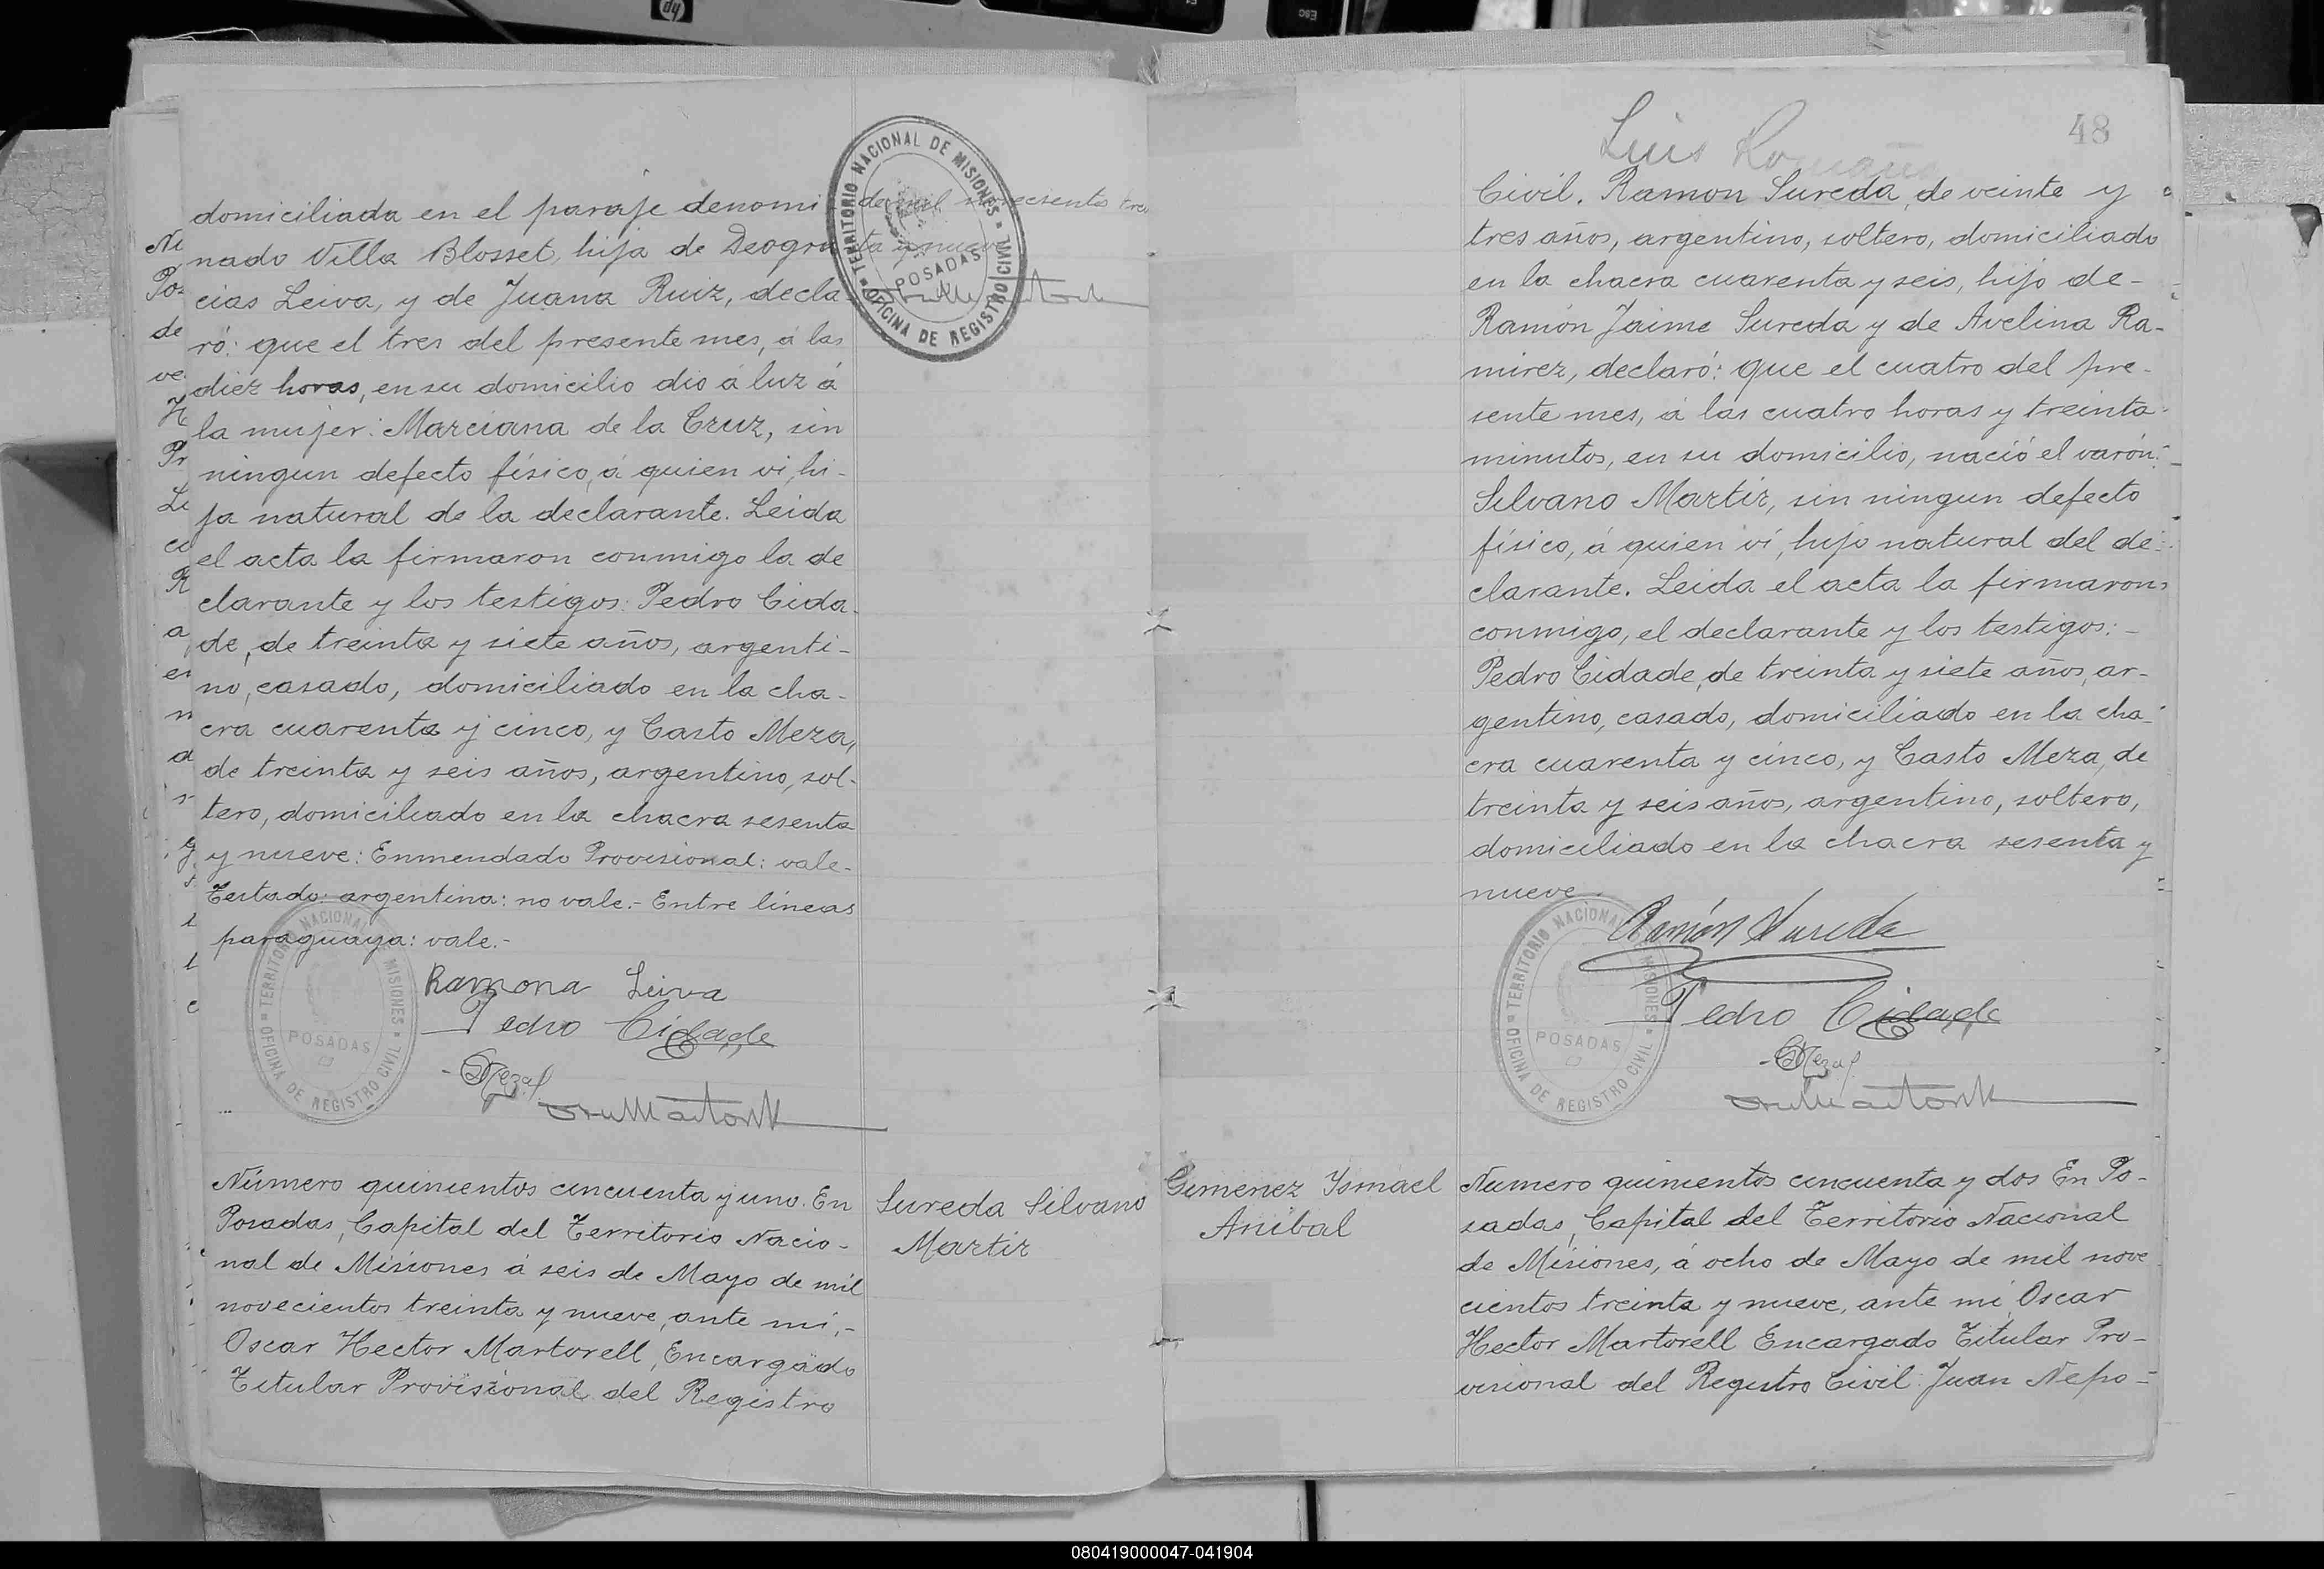 domiciliada en el paraje denomi
nado Villa Blosset, hija de Deogra
cias Leiva, y de Juana Ruiz, decla
ró: que el tres del presente mes, á las
diez horas, en su domicilio dio á luz á
la mujer: Marciana de la Cruz, sin
ningun defecto físico, á quien vi, hi-
ja natural de la declarante. Leida
el acta la firmaron conmigo la de
clarante y los testigos: Pedro Cida-
de, de treinta y siete años, argenti-
no, casado, domiciliado en la cha-
cra cuarenta y cinco, y Casto Meza,
de treinta y seis años, argentino, sol-
tero, domiciliado en la chacra sesenta
y nueve: Enmendado Provisional: vale-
Testado: argentina: no vale.- Entre líneas
paraguaya: vale.-
Ramona Leiva
Pedro Cidade
CMeza
TERRITORIO NACIONAL DE MISIONES
POSADAS
OFICINA DE REGISTRO CIVIL
Número quinientos cincuenta y uno. En
Posadas, Capital del Territorio Nacio-
nal de Misiones á seis de Mayo de mil
novecientos treinta y nueve, ante mi,-
Oscar Hector Martorell, Encargado
Titular Provisional del Registro
de mil novecientos trein
ta y nueve
TERRITORIO NACIONAL DE MISIONES
POSADAS
OFICINA DE REGISTRO CIVIL
Sureda Silvano
Martir
Luis Romaña
48
Civil. Ramon Sureda, de veinte y
tres años, argentino, soltero, domiciliado
en la chacra cuarenta y seis, hijo de-
Ramón Jaime Sureda y de Avelina Ra-
mirez, declaró: que el cuatro del pre-
sente mes, á las cuatro horas y treinta
minutos, en su domicilio, nació el varón:
Silvano Martir, sin ningun defecto
físico, á quien ví, hijo natural del de-
clarante. Leida el acta la firmaron
conmigo, el declarante y los testigos:-
Pedro Cidade, de treinta y siete años, ar-
gentino, casado, domiciliado en la cha-
cra cuarenta y cinco, y Casto Meza, de
treinta y seis años, argentino, soltero,
domiciliado en la chacra sesenta y
nueve.
Ramón Sureda
Pedro Cidade
CMeza
TERRITORIO NACIONAL DE MISIONES
POSADAS
OFICINA DE REGISTRO CIVIL
Gimenez Ismael
Anibal
Numero quinientos cincuenta y dos En Po-
sadas, Capital del Territorio Nacional
de Misiones, á ocho de Mayo de mil nove
cientos treinta y nueve, ante mi Oscar
Hector Martorell Encargado Titular Pro-
visional del Registro Civil: Juan Nepo-
080419000047-041904